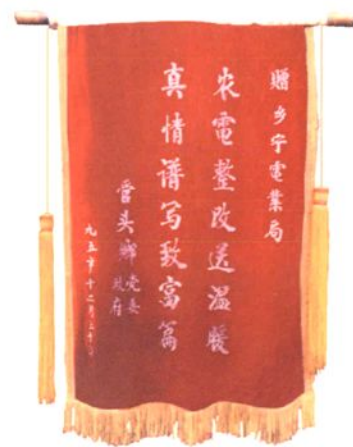 赠乡宁电业局
农電整改送温暖
真情谱写致富篇
管头鄉党委
政府
九五年十二月